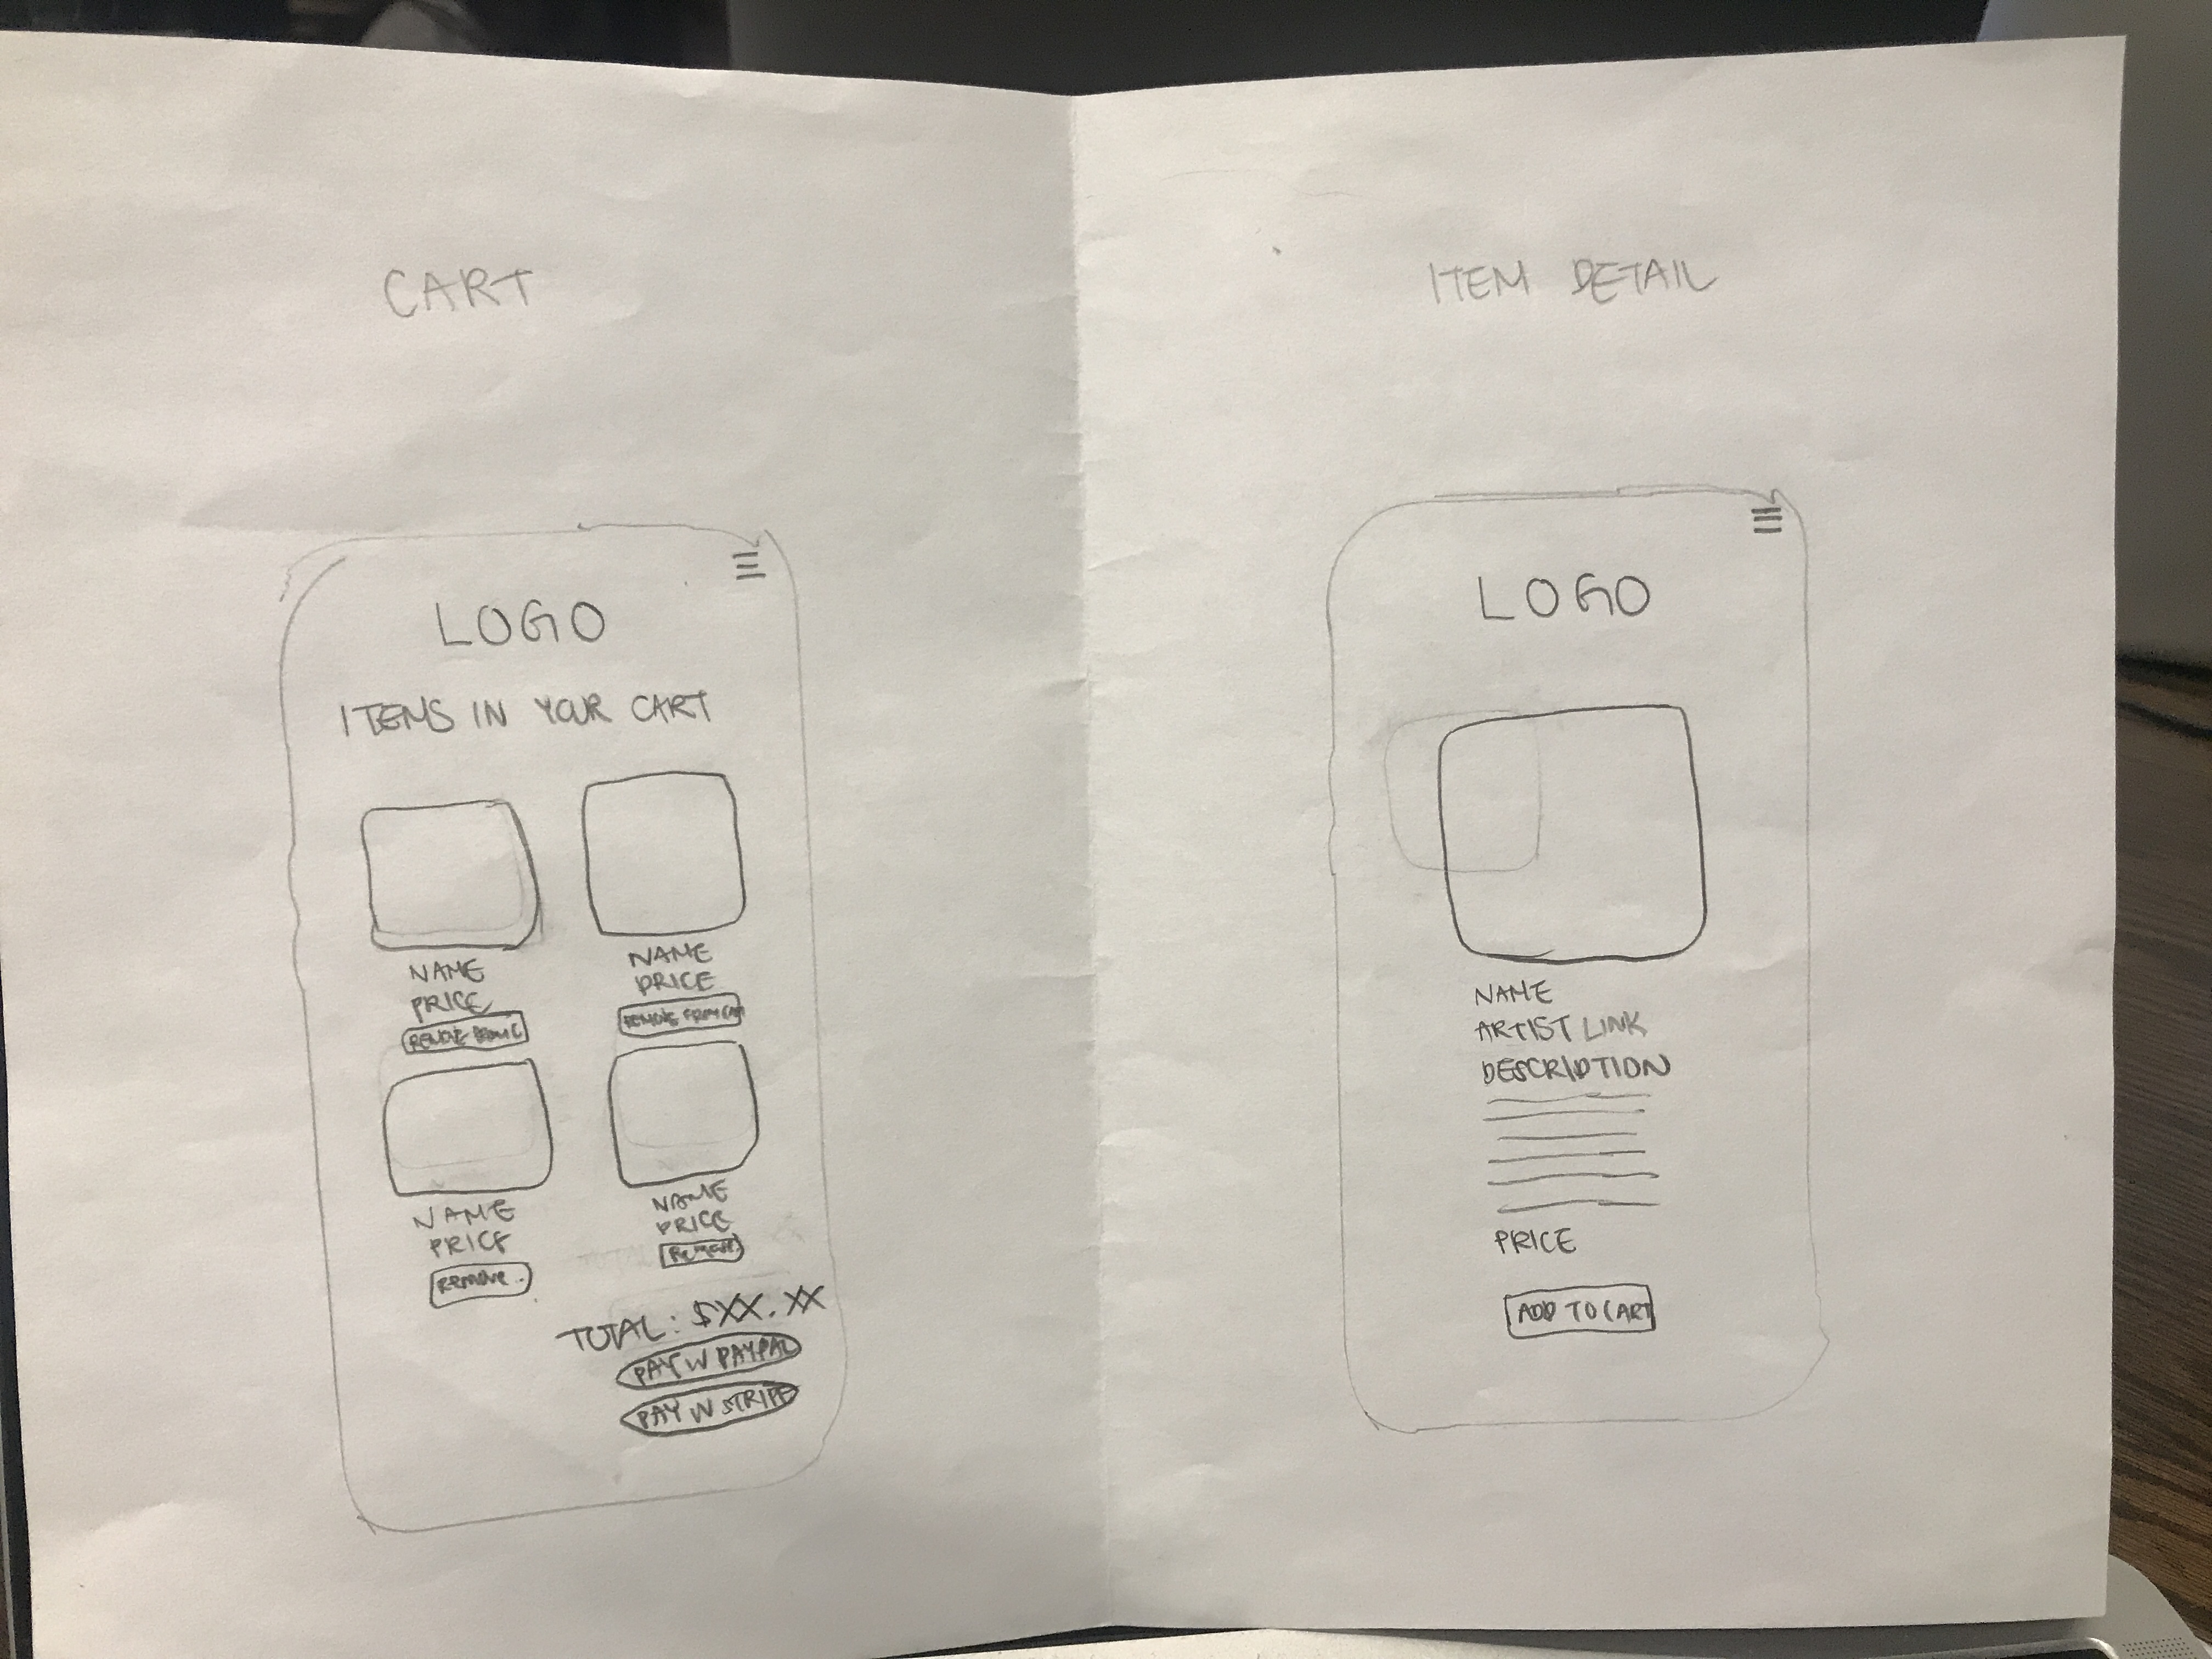 CART
LOGO
ITEMS IN YOUR CART
NAME
PRICE
REMOVE FROM C
NAME
PRICE
REMOVE FROM CART
NAME
PRICE
REMOVE
NAME
PRICE
REMOVE
TOTAL: $XX.XX
PAY W PAYPAL
PAY W STRIPE
ITEM DETAIL
LOGO
NAME
ARTIST LINK
DESCRIPTION
PRICE
ADD TO CART